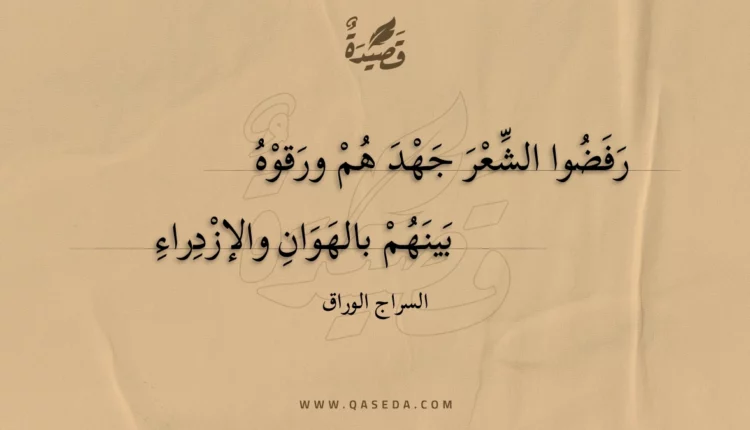 قَصِيْدَةٌ
رَفَضُوا الشِّعْرَ جَهْدَ هُمْ ورَقوْهُ
بَينَهُمْ بالهَوَانِ والإزْدِراءِ
السراج الوراق
WWW.QASEDA.COM